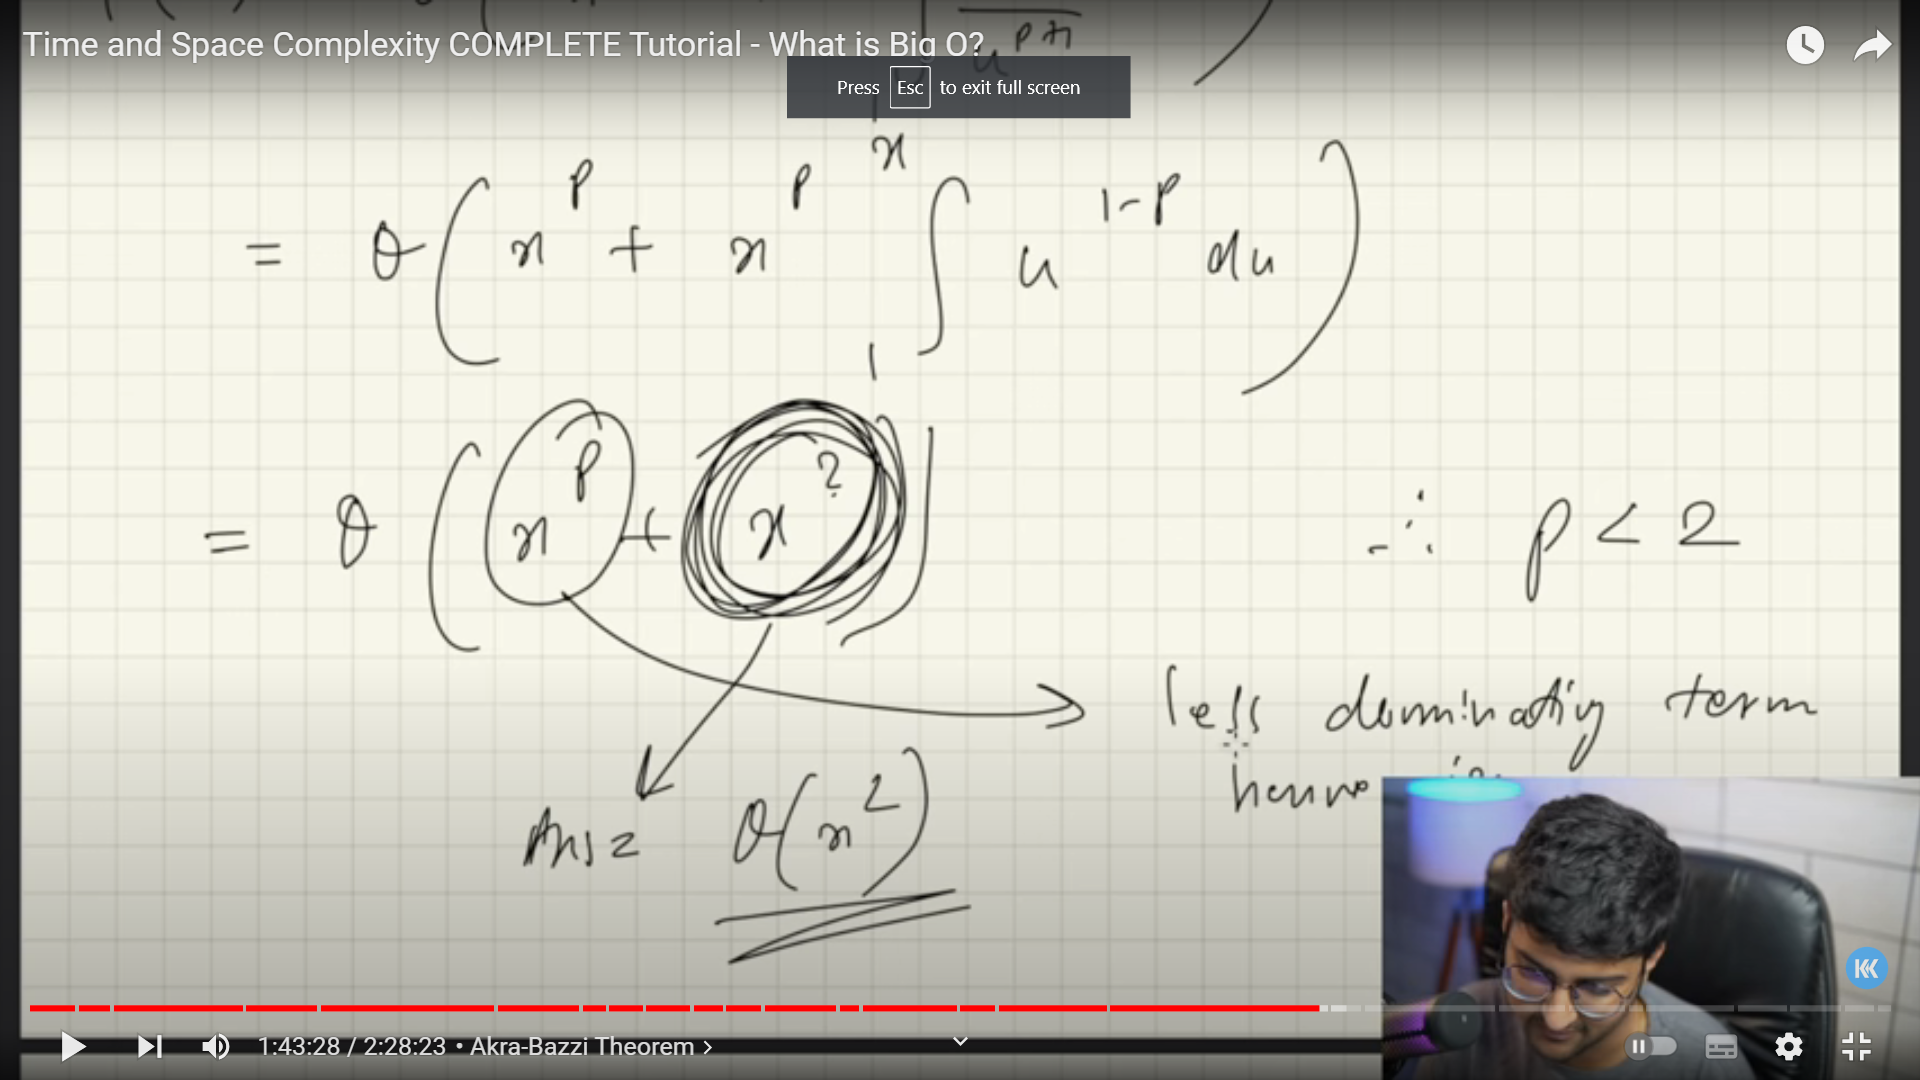 u^{p+1}
Time and Space Complexity COMPLETE Tutorial - What is Big O?
Press Esc to exit full screen
= θ(x^p + x^p ∫_1^x u^{1-p} du)
= θ(x^p + x^?) ∴ p < 2
less dominating term
Ans = θ(x^2)
1:43:28 / 2:28:23 • Akra-Bazzi Theorem >